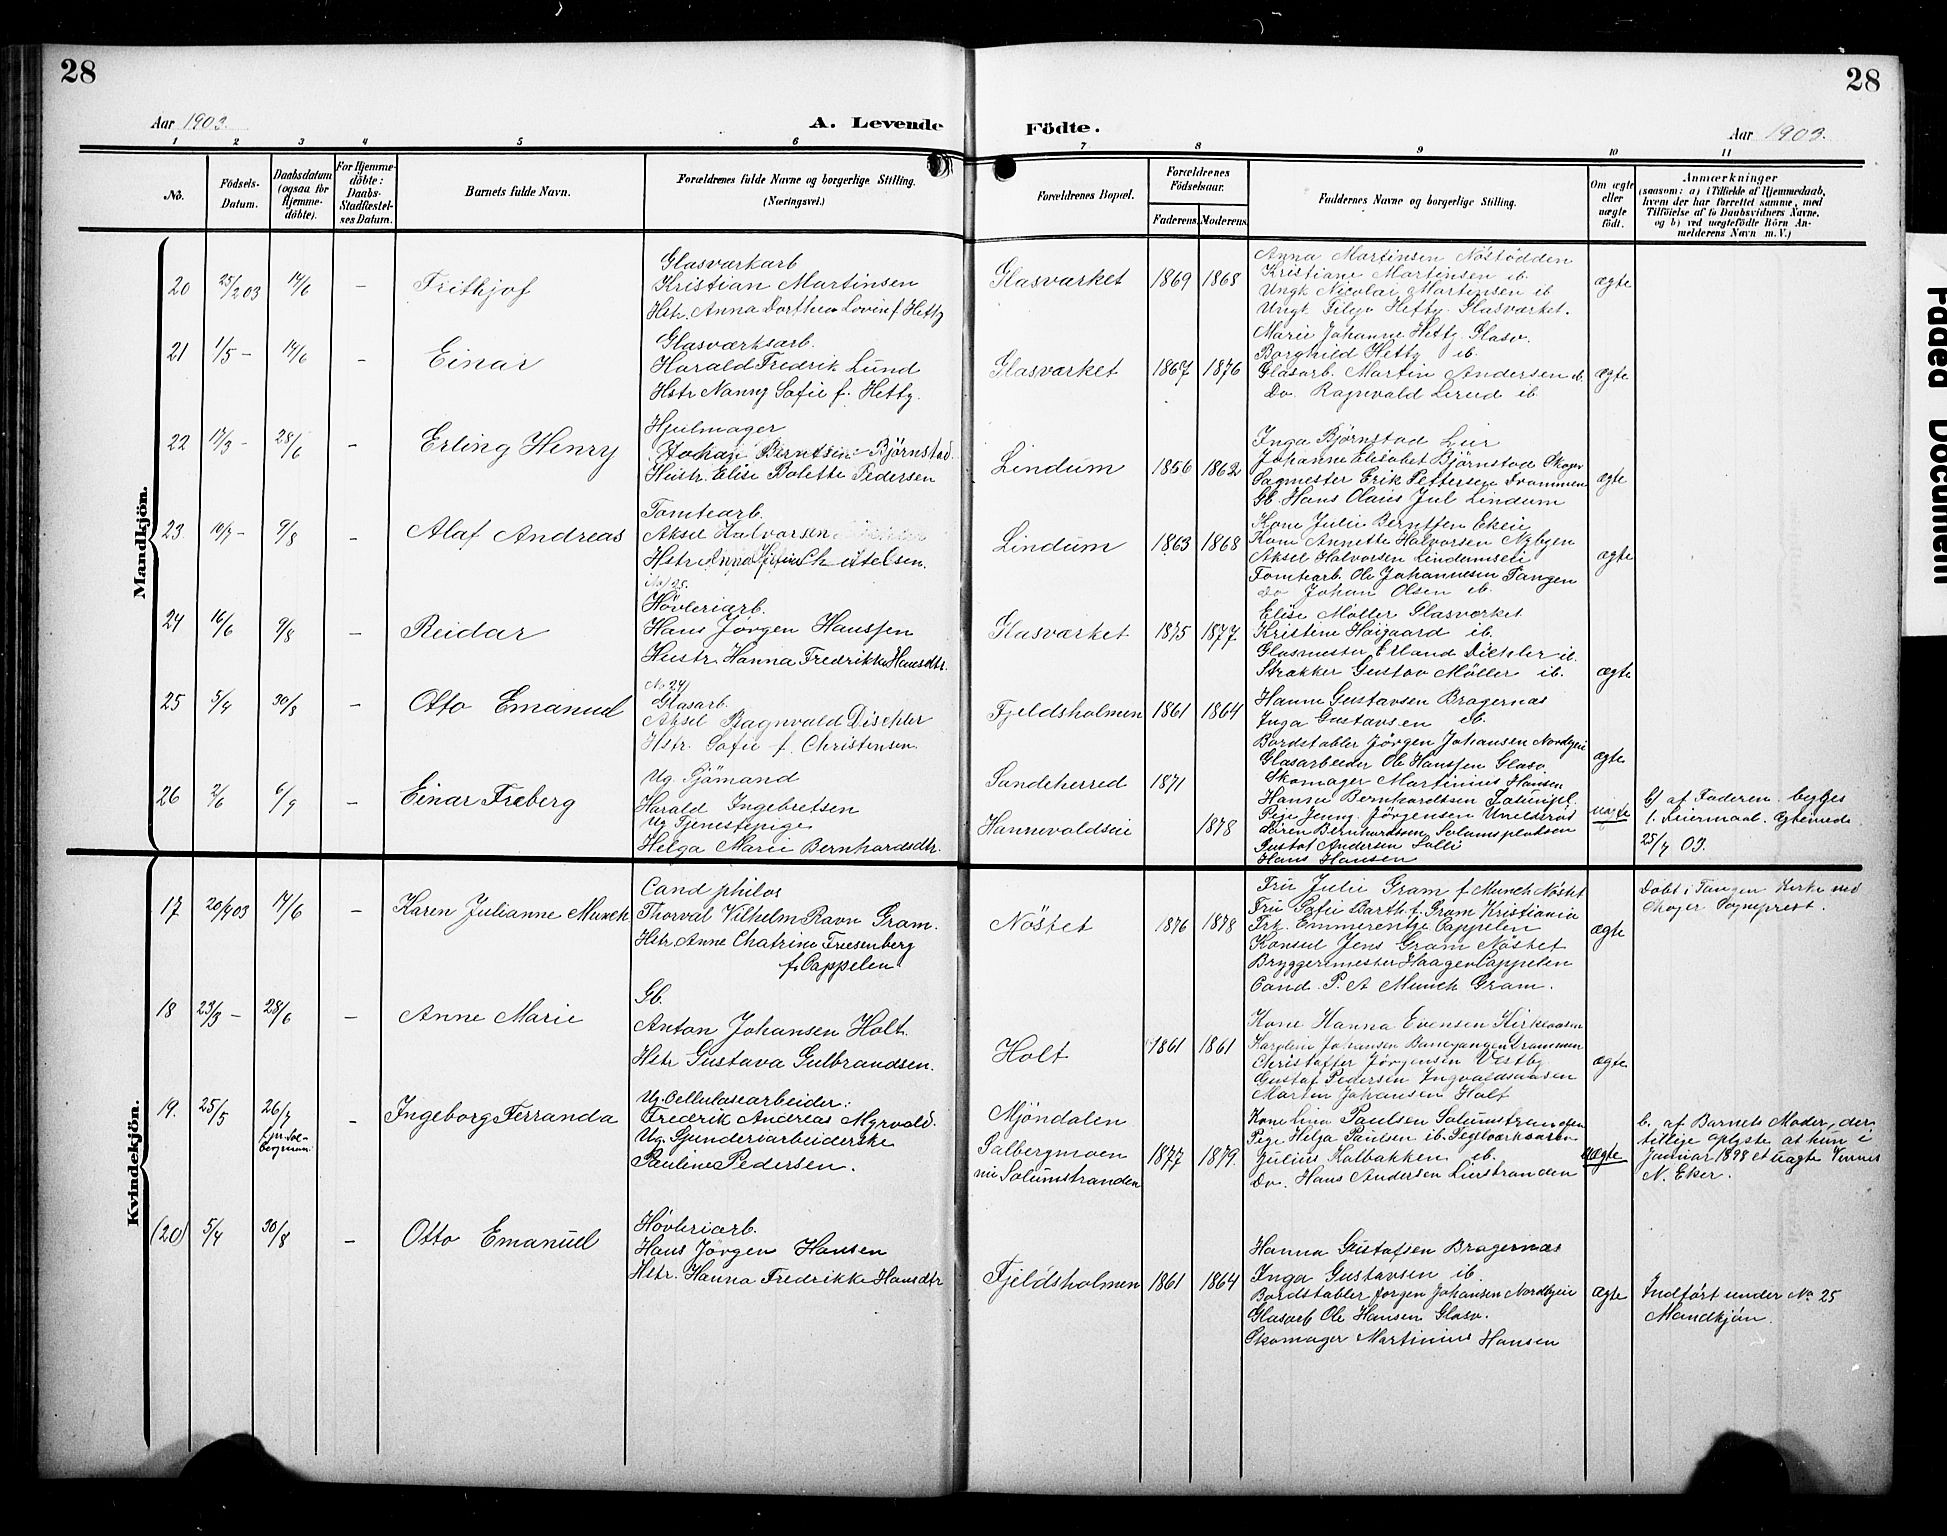 28
28
Aar 1903.
A. Levende
Födte.
Aar 1903.
1 2 3 4 5 6 7 8 9 10 11
No.
Födsels-
Datum.
Daabsdatum
(ogsaa for
Hjemme-
döbte).
For Hjemme-
döbte:
Daabs-
Stadfæstel-
ses Datum.
Barnets fulde Navn.
Forældrenes fulde Navne og borgerlige Stilling.
(Næringsvei.)
Forældrenes Bopæl.
Forældrenes
Födselsaar.
Faderens.
Moderens.
Faddernes Navne og borgerlige Stilling.
Om ægte
eller
uægte
födt.
Anmærkninger
(saasom: a) i Tilfælde af Hjemmedaab,
hvem der har forrettet samme, med
Tilföielse af to Daabsvidners Navne,
og b) ved uægtefödte Börn An-
melderens Navn m. V.)
Mandkjön.
20 25/2 03 14/6 - Frithjof
Glasværkarb
Kristian Martinsen
Hstr. Anna Dorthea Lovise f. Hetty
Glasværket 1869 1868
Anna Martinsen Nöstödden
Kristiane Martinsen ib.
Ungk Nicolai Martinsen ib
Ungk Hetty Glasværket.
ægte
21 1/5 - 14/6 - Einar
Glasværksarb.
Harald Fredrik Lund
Hstr Nanny Sofie f. Hetty.
Glasværket 1867 1876
Marie Johanne Hetty. Glasv.
Borghild Hetty ib.
Glasarb. Martin Andersen ib
Do. Ragnvald Lerud ib.
ægte
22 17/3 - 28/6 - Erling Henry
Hjulmager
Johan Berntsen Björnstad.
Hustr. Elise Bolette Pedersen
Lindum 1856 1862
Inga Björnstad Lier
Johanne Elisabet Björnstad Skoger
Sagmester Erik Pettersen Drammen
Gb. Hans Olaus Jul Lindum
ægte
23 10/7 - 9/8 - Alaf Andreas
Tomtearb.
Aksel Halvorsen
Hstr Anna
Lindum 1863 1868
Kone Julie Berntsen Ekeie
Kone Annette Halvorsen Nybyen
Aksel Halvorsen Lindumseie
Tomtearb. Ole Johannesen Tangen
Do Johan Olsen ib.
ægte
24 16/6 9/8 - Reidar
No 25
Hövleriarb.
Hans Jörgen Hanssen
Hustr. Hanna Fredrikke Hansdtr.
Glasværket 1875 1877
Elise Möller Glasværket
Kristine Höigaard ib.
Glasmester Erland Dichler ib.
Strækker Gustav Möller ib.
ægte
25 5/4 30/8 - Otto Emanuel
No 24)
Glasarb.
Aksel Ragnvald Dischler
Hstr. Sofie f. Christensen
Fjeldsholmen 1861 1864
Hanne Gustavsen Bragernæs
Inga Gustavsen ib.
Bordstabler Jörgen Johansen Nordbyeie
Glasarbeider Ole Hanssen Glasv
Skomager Martinius Hansen
ægte
26 2/6 6/9 - Einar Freberg
Ug. Sjömand
Harald Ingebretsen
Ug Tjenestepige
Helga Marie Bernhardsdtr.
Sandeherred 1871
Hannevoldseie 1878
Hanna Bernhardtsen
Pige Jenny Jörgensen
Sören Bernhardsen
Gustaf Andersen Solli
Hans Hansen
uægte
b) af Faderen. begges
1. Leiermaal. Ægteviede
25/7 03.
Kvindekjön.
17 20/4 03 14/6 - Karen Julianne Munch
Cand philos
Thorval Vilhelm Ravn Gram.
Hstr Anne Chatrine Friesenberg
f. Cappelen
Nöstet 1876 1878
Fru Julie Gram f. Munch Nöstet
Fru Sofie Barth f. Gram Kristiania
Frk. Emmerentze Cappelen
Konsul Jens Gram Nöstet
Bryggerimester Haagen Cappelen
Cand. P. A Munch Gram.
ægte
Döbt i Tangen Kirke ved
Skoger Sogneprest.
18 23/3 - 28/6 - Anne Marie
Gb.
Anton Johansen Holt.
Hstr Gustava Gulbrandsen.
Holt 1861 1861
Kone Hanna Evensen Kirkeaasen
Karoline Johansen Banegangen Drammen
Christoffer Jörgensen Vestby
Gustaf Pedersen Ingvaldsaasen
Martin Johansen Holt
ægte
19. 25/5 26/7 - Ingeborg Ferranda
Ug. Cellulosearbeider:
Fredrik Andreas Myrvold.
Ug. Spinderiarbeiderske
Pauline Pedersen.
Mjöndalen
Solbergmoen 1877 1879.
nu Solumstranden
Kone Lina Paulsen Solumstranden
Pige Helga Paulsen ib.
Julius Kolbakken ib.
Do. Hans Andersen Lierstranden
uægte
b. af Barnets Moder, der
tillige oplyste at hun i
Januar 1898
N. Eker.
(20) 5/4 30/8 - Otto Emanuel
Hövleriarb.
Hans Jörgen Hansen
Hstr. Hanna Fredrikke Hansdtr
Fjeldsholmen 1861 1864
Hanna Gustafsen Bragernæs
Inga Gustavsen ib.
Bordstabler Jörgen Johansen Nordbyeie
Glasarb Ole Hansen Glasv.
Skomager Martinius Hansen
ægte
Indfört under No 25
Mandkjön.
Faded Document